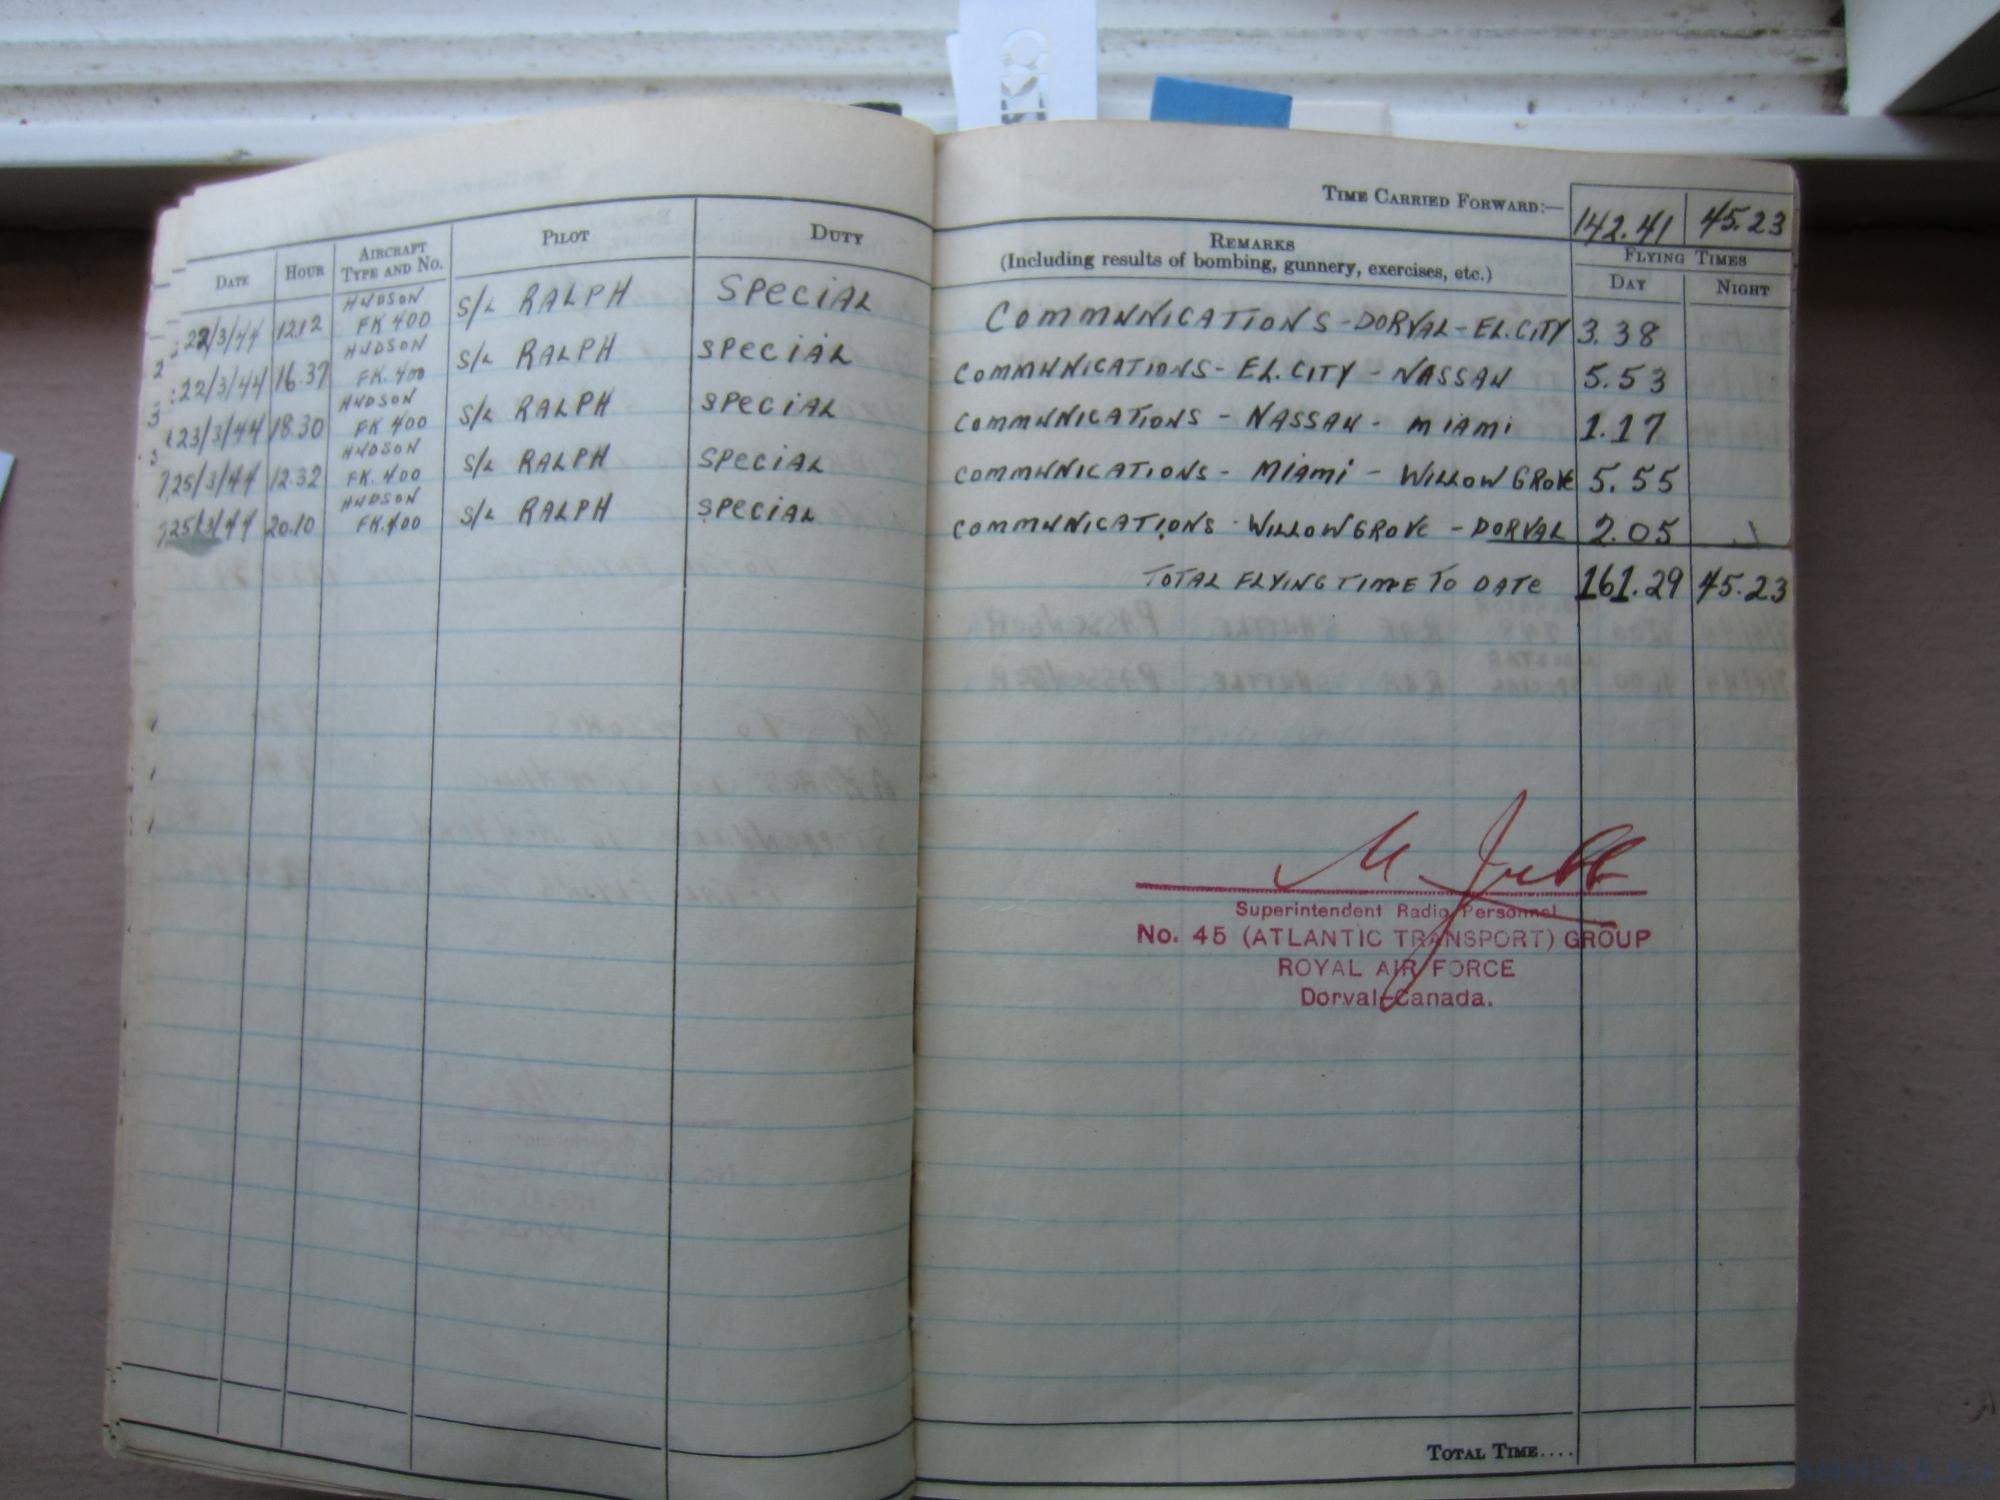 TIME CARRIED FORWARD:— 142.41 45.23
DATE HOUR AIRCRAFT TYPE AND NO. PILOT DUTY REMARKS (Including results of bombing, gunnery, exercises, etc.) FLYING TIMES DAY NIGHT
22/3/44 1212 HUDSON FK 400 S/L RALPH SPECIAL COMMUNICATIONS - DORVAL - EL.CITY 3.38
22/3/44 16.37 HUDSON FK.400 S/L RALPH SPECIAL COMMUNICATIONS - EL.CITY - NASSAU 5.53
23/3/44 18.30 HUDSON FK 400 S/L RALPH SPECIAL COMMUNICATIONS - NASSAU - MIAMI 1.17
25/3/44 12.32 HUDSON FK.400 S/L RALPH SPECIAL COMMUNICATIONS - MIAMI - WILLOW GROVE 5.55
25/3/44 20.10 HUDSON FK.400 S/L RALPH SPECIAL COMMUNICATIONS - WILLOW GROVE - DORVAL 2.05
TOTAL FLYING TIME TO DATE 161.29 45.23
M. Jubb
Superintendent Radio Personnel
No. 45 (ATLANTIC TRANSPORT) GROUP
ROYAL AIR FORCE
Dorval-Canada.
TOTAL TIME....
SAMMLER.RU